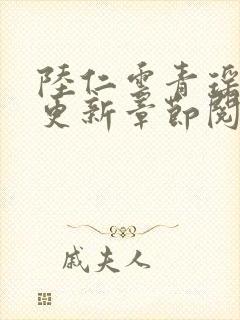 陸仁雲青瑤
更新章節閱
戚夫人